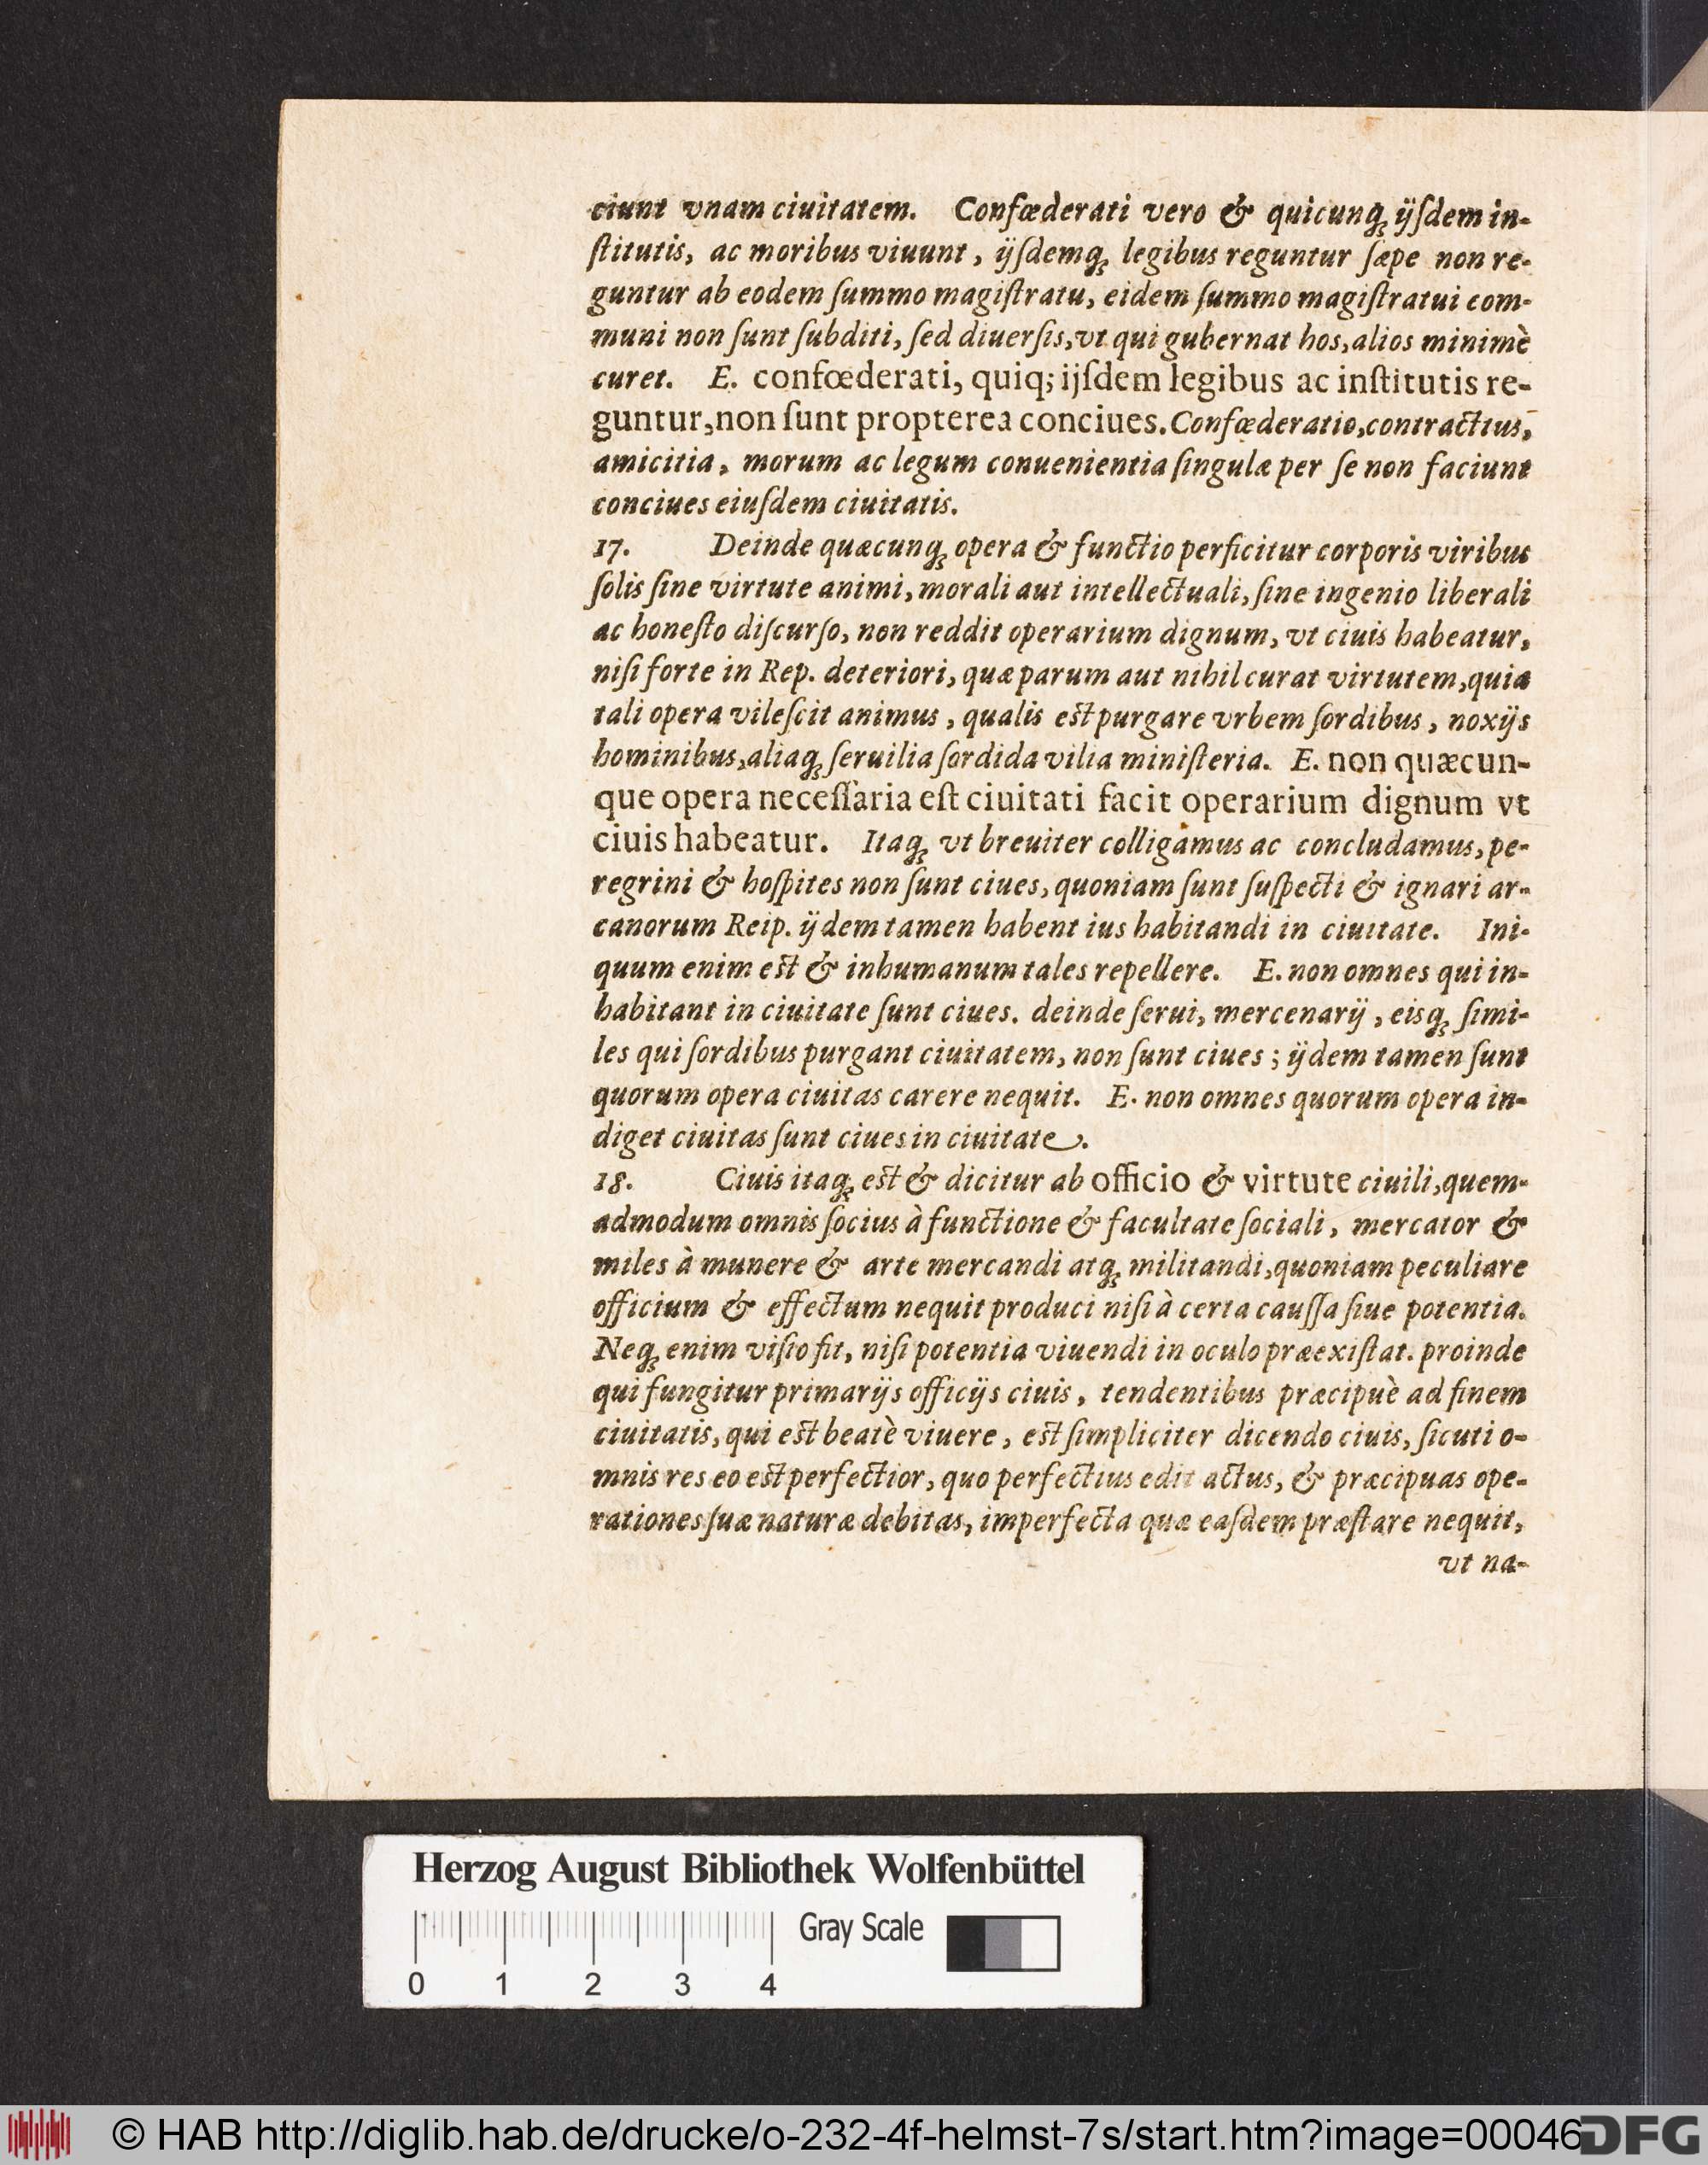 ciunt vnam ciuitatem. Confœderati vero & quicunq; ijſdem in-
ſtitutis, ac moribus viuunt, ijſdemq; legibus reguntur ſæpe non re-
guntur ab eodem ſummo magiſtratu, eidem ſummo magiſtratui com-
muni non ſunt ſubditi, ſed diuerſis, vt qui gubernat hos, alios minimè
curet. E. confœderati, quiq; ijſdem legibus ac inſtitutis re-
guntur, non ſunt propterea conciues. Confœderatio, contractius,
amicitia, morum ac legum conuenientia ſingulæ per ſe non faciunt
conciues eiuſdem ciuitatis.
17. Deinde quæcunq; opera & functio perficitur corporis viribus
ſolis ſine virtute animi, morali aut intellectuali, ſine ingenio liberali
ac honeſto diſcurſo, non reddit operarium dignum, vt ciuis habeatur,
niſi forte in Rep. deteriori, quæ parum aut nihil curat virtutem, quia
tali opera vileſcit animus, qualis eſt purgare vrbem ſordibus, noxijs
hominibus, aliaq; ſeruilia ſordida vilia miniſteria. E. non quæcun-
que opera neceſſaria eſt ciuitati facit operarium dignum vt
ciuis habeatur. Itaq; vt breuiter colligamus ac concludamus, pe-
regrini & hoſpites non ſunt ciues, quoniam ſunt ſuſpecti & ignari ar-
canorum Reip. ijdem tamen habent ius habitandi in ciuitate. Ini-
quum enim eſt & inhumanum tales repellere. E. non omnes qui in-
habitant in ciuitate ſunt ciues. deinde ſerui, mercenarij, eisq; ſimi-
les qui ſordibus purgant ciuitatem, non ſunt ciues; ijdem tamen ſunt
quorum opera ciuitas carere nequit. E. non omnes quorum opera in-
diget ciuitas ſunt ciues in ciuitate.
18. Ciuis itaq; eſt & dicitur ab officio & virtute ciuili, quem-
admodum omnis ſocius à functione & facultate ſociali, mercator &
miles à munere & arte mercandi atq; militandi, quoniam peculiare
officium & effectum nequit produci niſi à certa cauſſa ſiue potentia.
Neq; enim viſio fit, niſi potentia viuendi in oculo præexiſtat. proinde
qui fungitur primarijs officijs ciuis, tendentibus præcipuè ad finem
ciuitatis, qui eſt beatè viuere, eſt ſimpliciter dicendo ciuis, ſicuti o-
mnis res eo eſt perfectior, quo perfectius edit actus, & præcipuas ope-
rationes ſuæ naturæ debitas, imperfecta quæ eaſdem præſtare nequit,
vt na-
Herzog August Bibliothek Wolfenbüttel
Gray Scale
0 1 2 3 4
© HAB http://diglib.hab.de/drucke/o-232-4f-helmst-7s/start.htm?image=00046
DFG